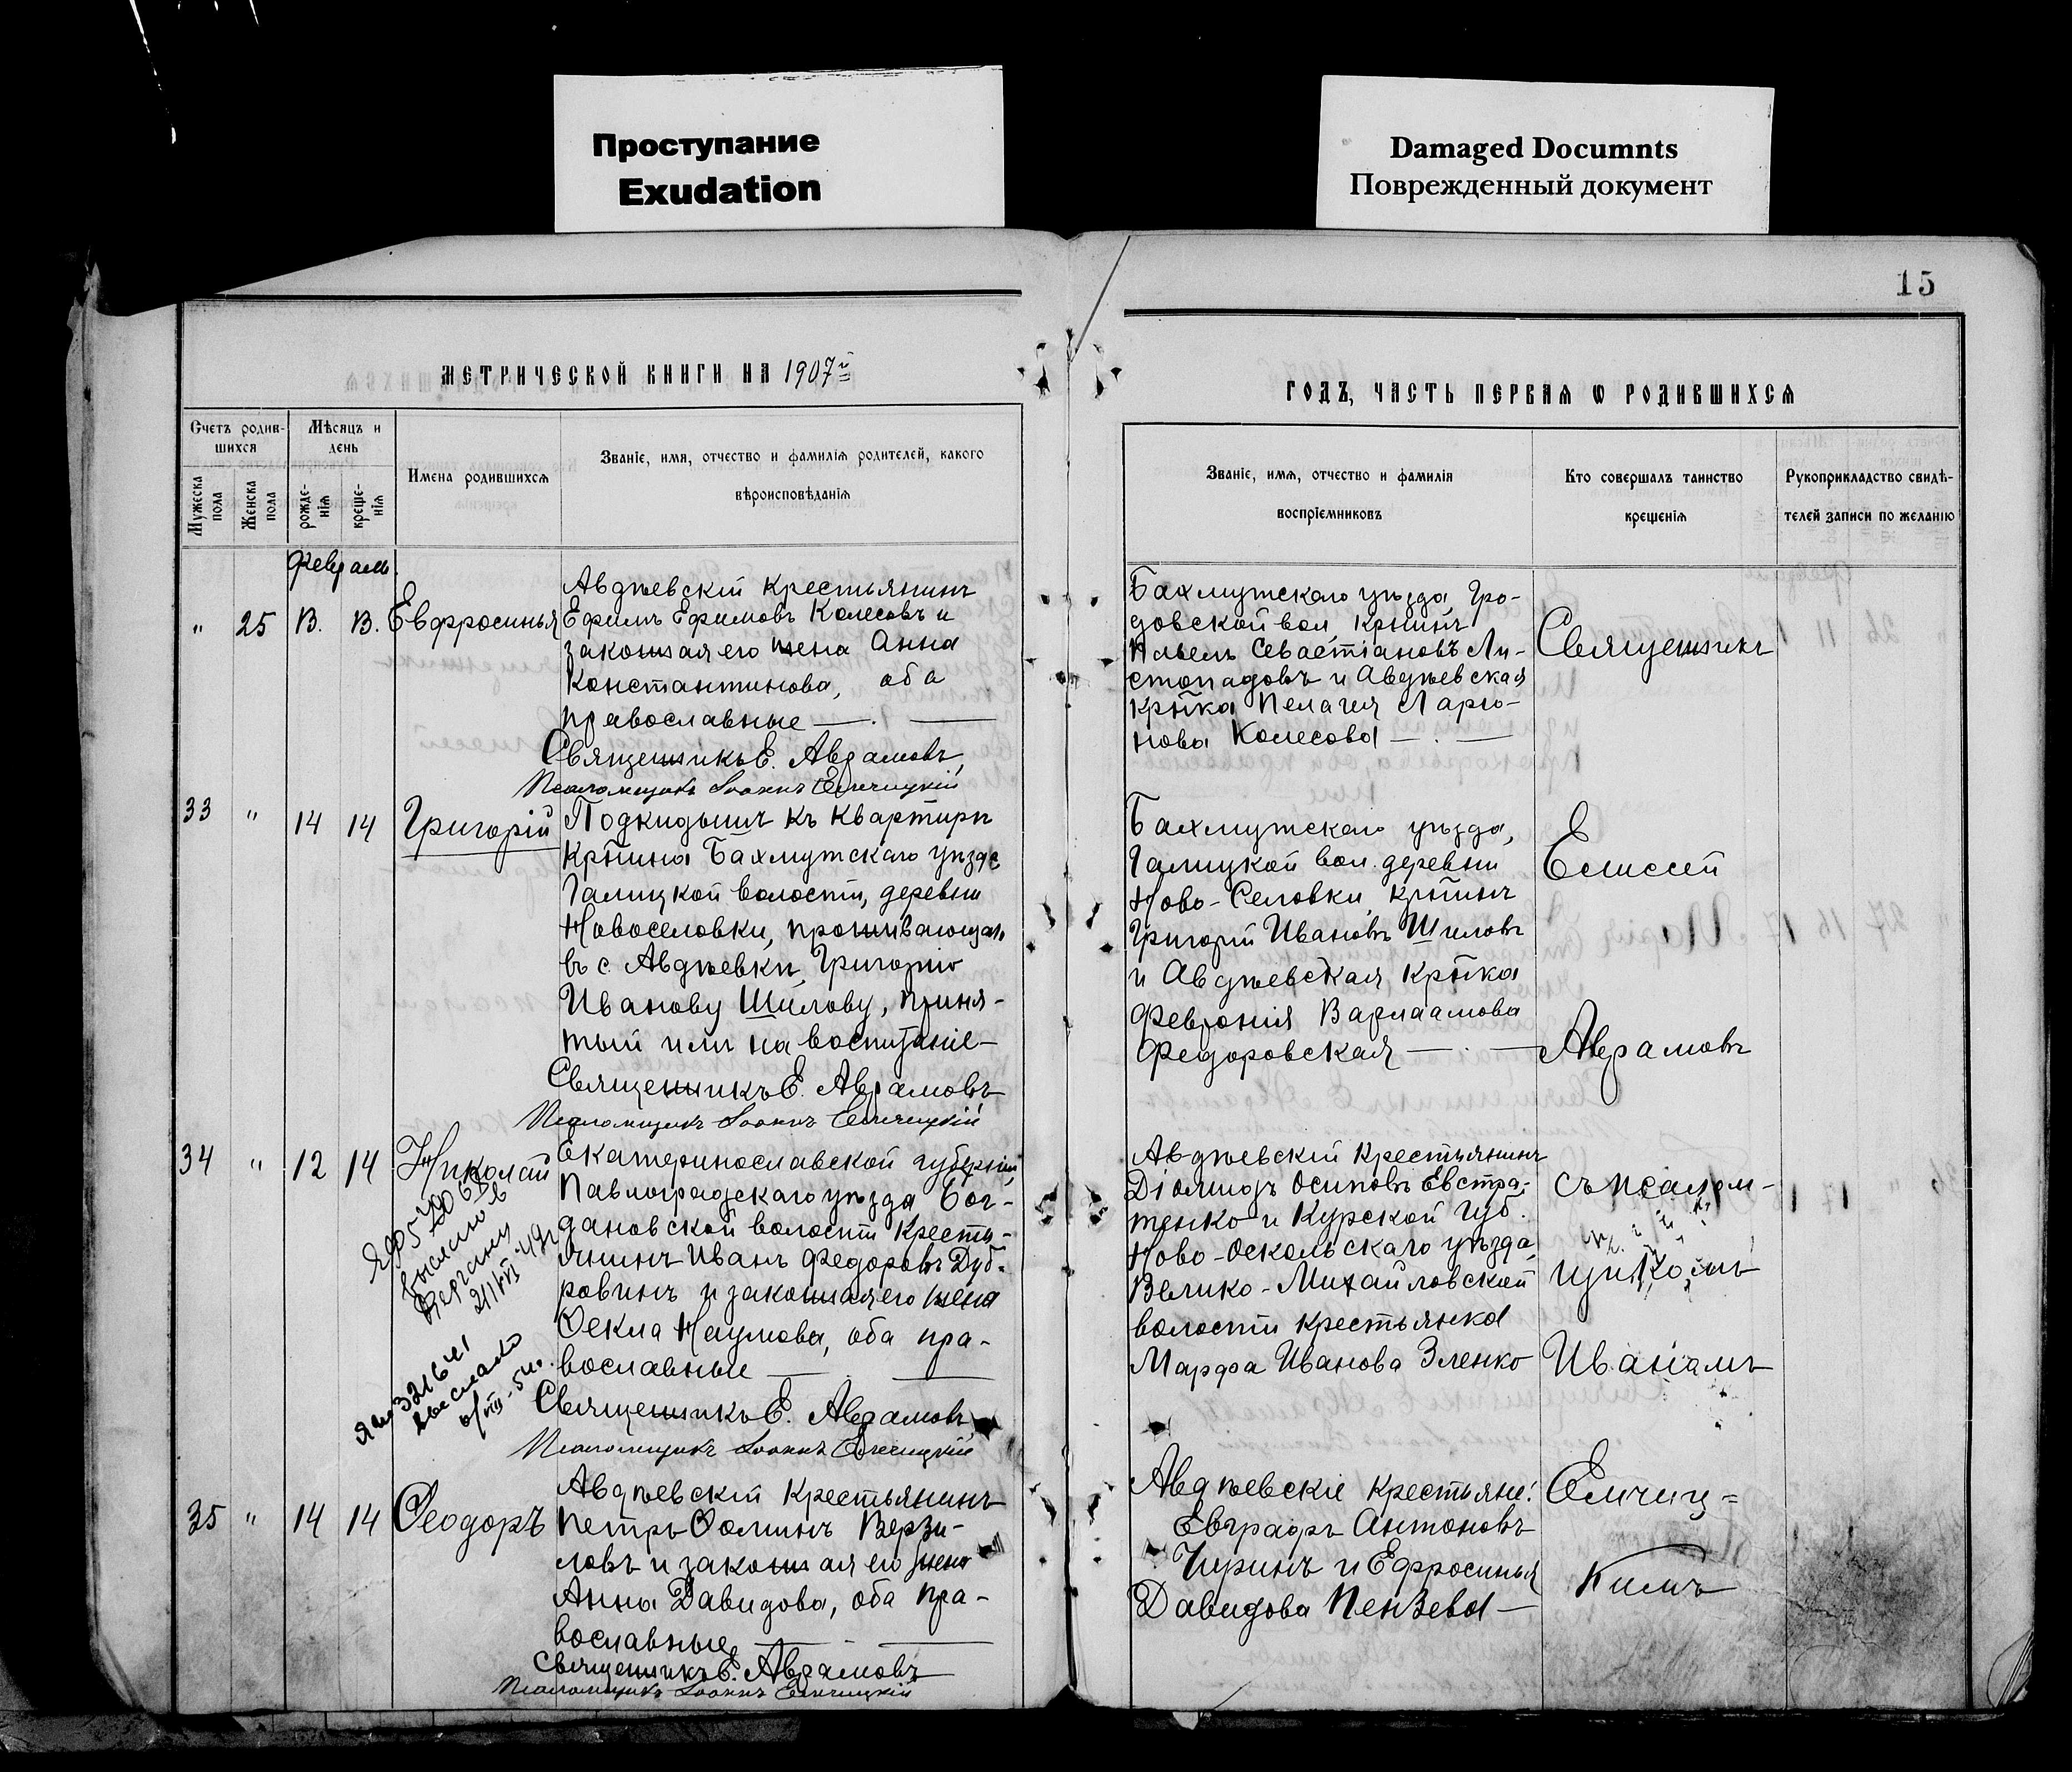 Проступание
Exudation
Damaged Documnts
Поврежденный документ
15
МЕТРИЧЕСКОЙ КНИГИ НА 1907й
ГОДЪ, ЧАСТЬ ПЕРВАЯ Ѡ РОДИВШИХСЯ
Счетъ родив-
шихся
Мѣсяцъ и
день
Мужеска
пола
Женска
пола
рожде-
нія
креще-
нія
Имена родившихся
Званіе, имя, отчество и фамилія родителей, какого
вѣроисповѣданія
Званіе, имя, отчество и фамилія
воспріемниковъ
Кто совершалъ таинство
крещенія
Рукоприкладство свидѣ-
телей записи по желанію
Февраль.
" 25 8. 8. Евфросинья
Авдѣевскій крестьянинъ
Ефимъ Ефимовъ Колесовъ и
законная его жена Анна
Константинова, оба
православные —
Священникъ Е. Аврамовъ,
Псаломщикъ Іоаннъ Елчицкій
Бахмутскаго уѣзда, Гро-
довской вол. кр͠нинъ
Павелъ Севастіановъ Ли-
стопадовъ и Авдѣевская
кр͠нка Пелагея Ларіо-
нова Колесова —
33 " 14 14 Григорій
Подкидышъ къ квартирѣ
кр͠нина Бахмутскаго уѣзда
Галицкой волости, деревни
Новоселовки, проживающаго
въ с. Авдѣевкѣ, Григорію
Иванову Шилову, приня-
тый имъ на воспитаніе —
Священникъ Е. Аврамовъ
Псаломщикъ Іоаннъ Елчицкій
Бахмутскаго уѣзда,
Галицкой вол. деревни
Ново-Селовки, кр͠нинъ
Григорій Ивановъ Шиловъ
и Авдѣевская кр͠нка
Феврония Варлаамова
Федоровская —
34 " 12 14 Николай
Екатеринославской губерніи,
Павлоградскаго уѣзда Бог-
дановской волости кресть-
янинъ Иванъ Федоровъ Дуб-
ровинъ и законная его жена
Ѳекла Наумова, оба пра-
вославные —
Священникъ Е. Аврамовъ
Псаломщикъ Іоаннъ Елчицкій
321641
выслано
Авдѣевскій крестьянинъ
Діомидъ Осиповъ Евстра-
тенко и Курской губ.
Ново-Оскольскаго уѣзда,
Велико-Михайловской
волости крестьянка
Марфа Иванова Зленко
35 " 14 14 Ѳеодоръ
Авдѣевскій крестьянинъ
Петръ Ѳоминъ Верзи-
ловъ и законная его жена
Анна Давидова, оба пра-
вославные —
Священникъ Е. Аврамовъ
Псаломщикъ Іоаннъ Елчицкій
Авдѣевскіе крестьяне:
Евграфъ Антоновъ
Чиринъ и Ефросинья
Давидова Пензева —
Священникъ
Елиссей
Аврамовъ
съ псалом-
щикомъ
Иваномъ
Елчиц=
кимъ